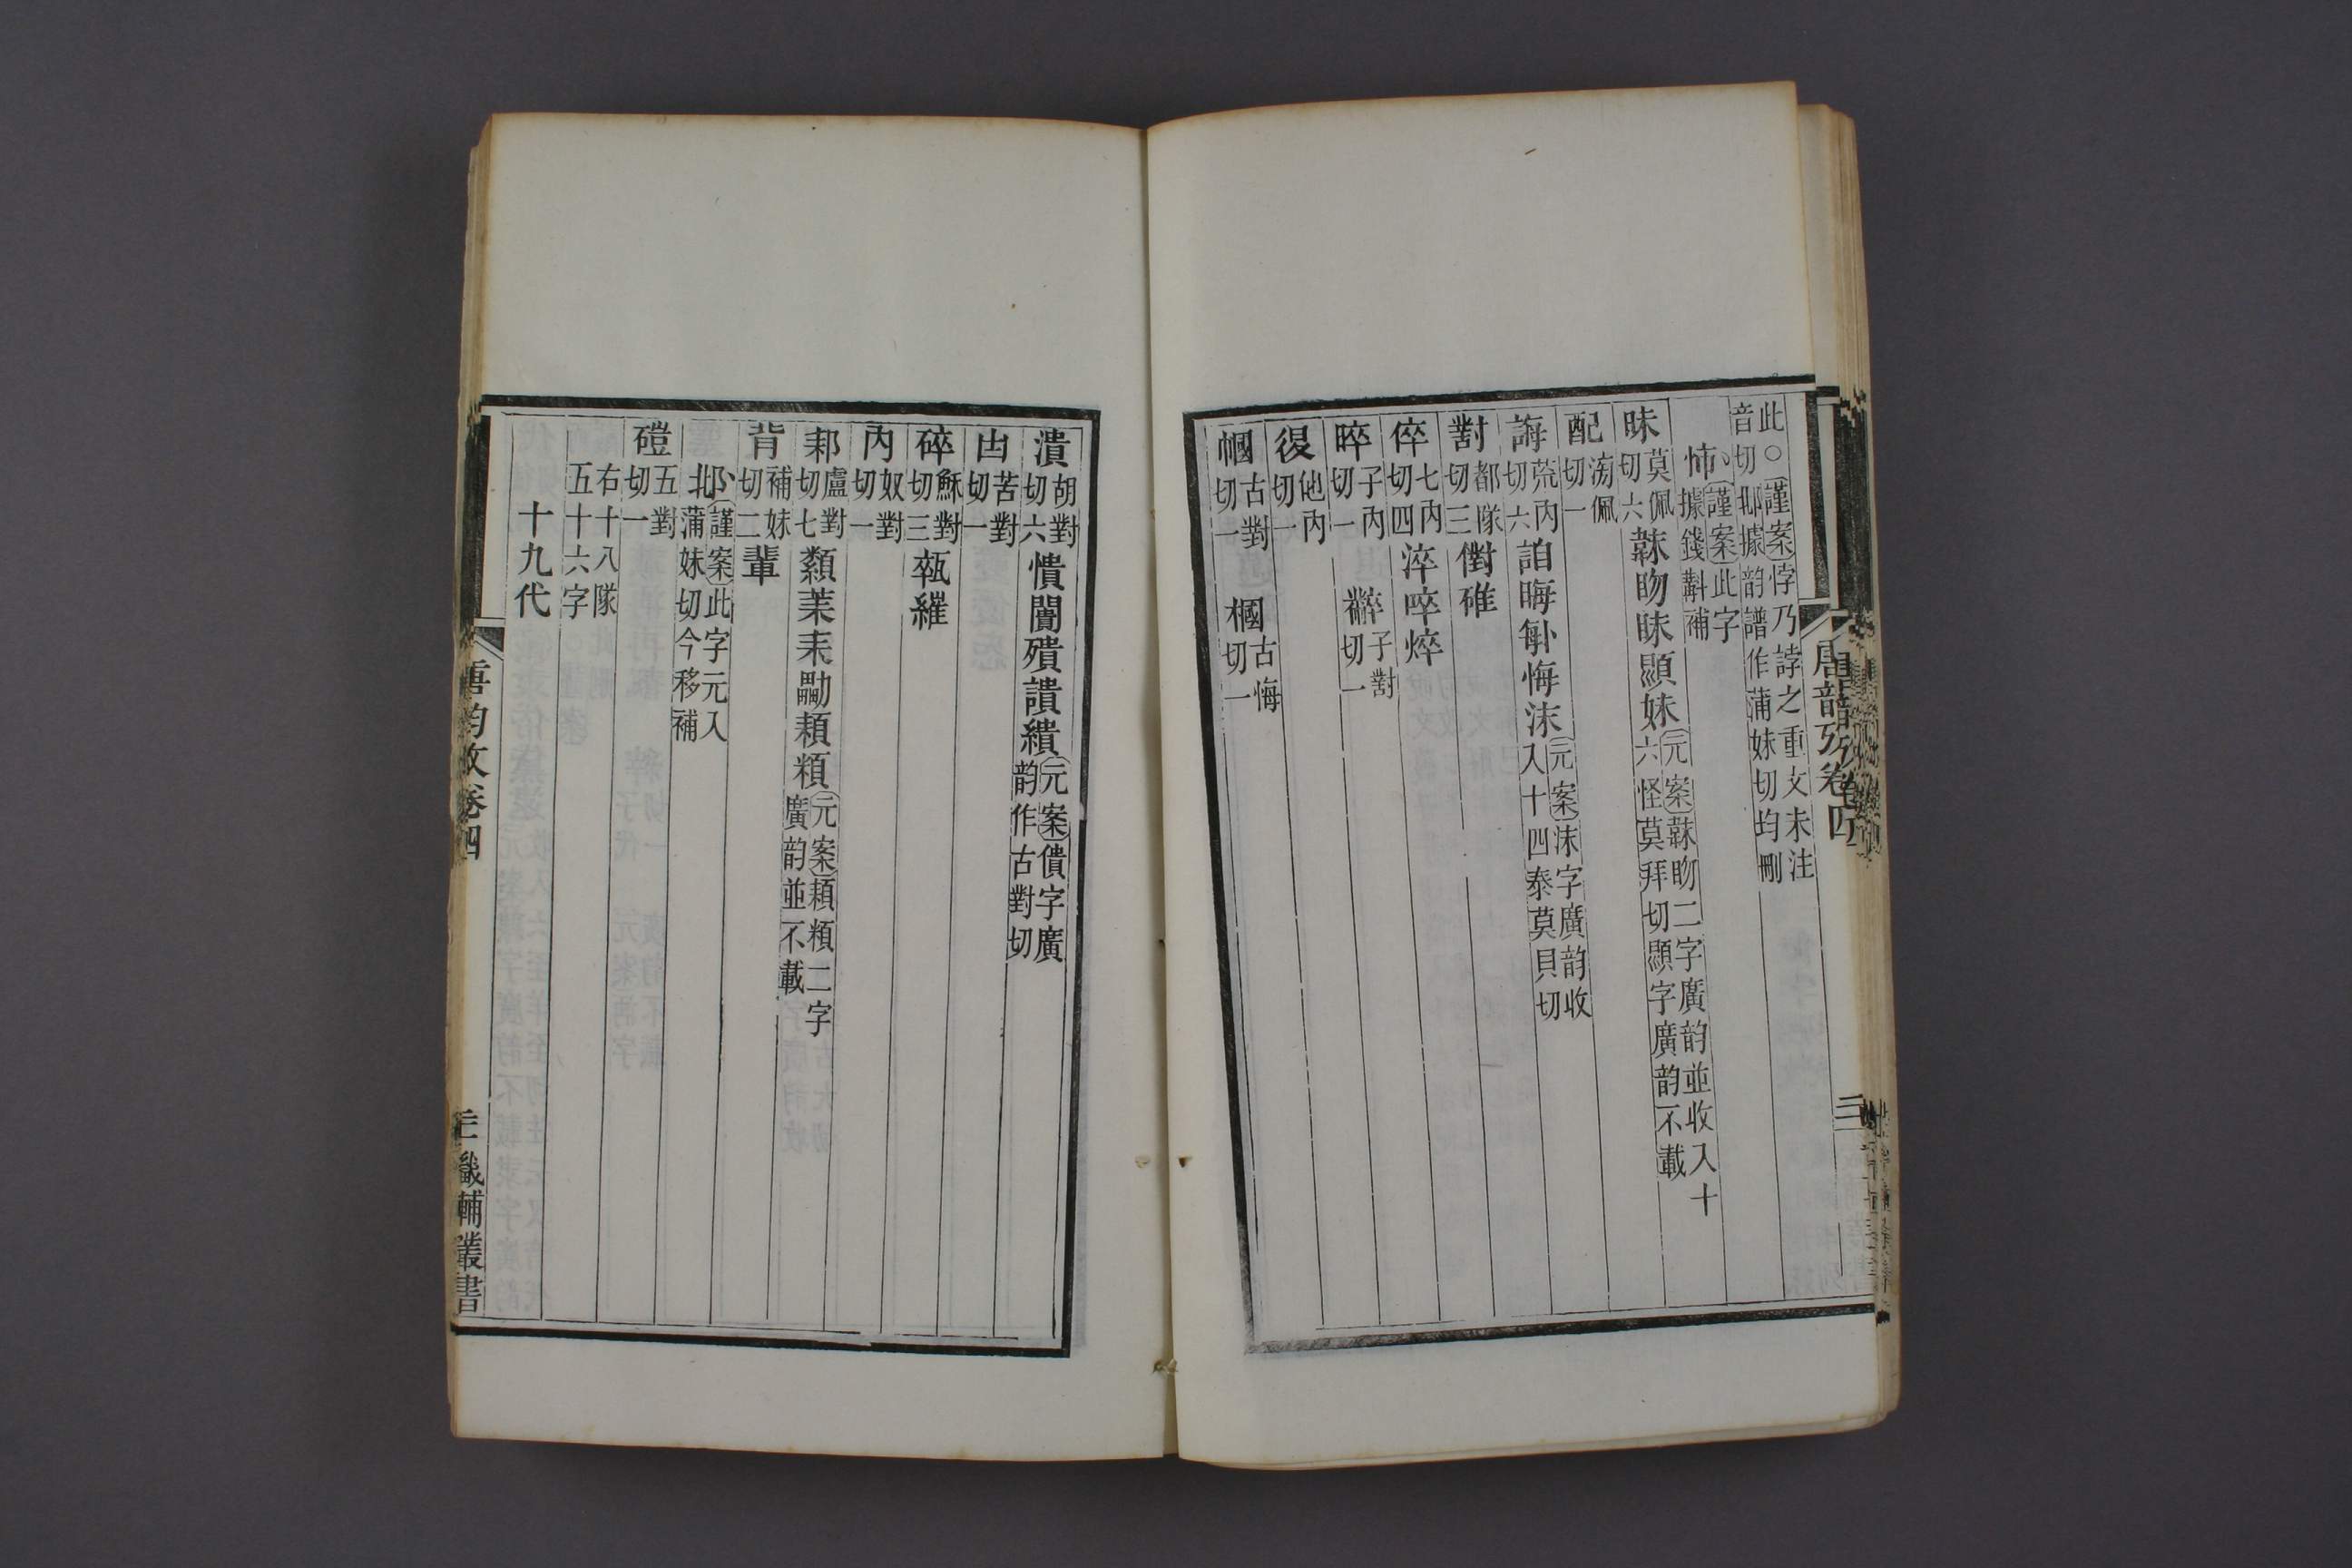 唐韵攷卷四
三
此○謹案悖乃誖之重文未注
音切邶據韵譜作蒲妹切均刪
㤄謹案此字
據錢斠補
昧莫佩
切六韎昒眛顯妹元案韎昒二字廣韵並收入十
六怪莫拜切顯字廣韵不載
配滂佩
切一
誨荒內
切六䛠晦𣫭悔沬元案沬字廣韵收
入十四泰莫貝切
對都隊
切三𠏮碓
倅七內
切四淬啐焠
晬子內
切一 䊫子對
切一
復他內
切一
幗古對
切一 槶古悔
切一
潰胡對
切六憒闠殨讃繢元案僓字廣
韵作古對切
凷苦對
切一
碎穌對
切三㼽繀
內奴對
切一
耒盧對
切七纇茉耒勵頛頪元案頛頪二字
廣韵並不載
背補妹
切二輩
邶謹案此字元入
北蒲妹切今移補
磑五對
切一
右十八隊
五十六字
十九代
唐韵攷卷四
三
畿輔叢書